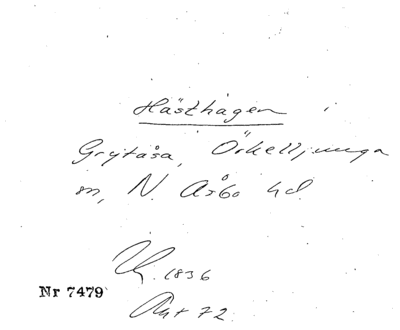 Hästhagen i
Grytåsa, Örkelljunga
sn, N. Åsbo hd.
Lh. 1836
Nr 7479
Akt 72